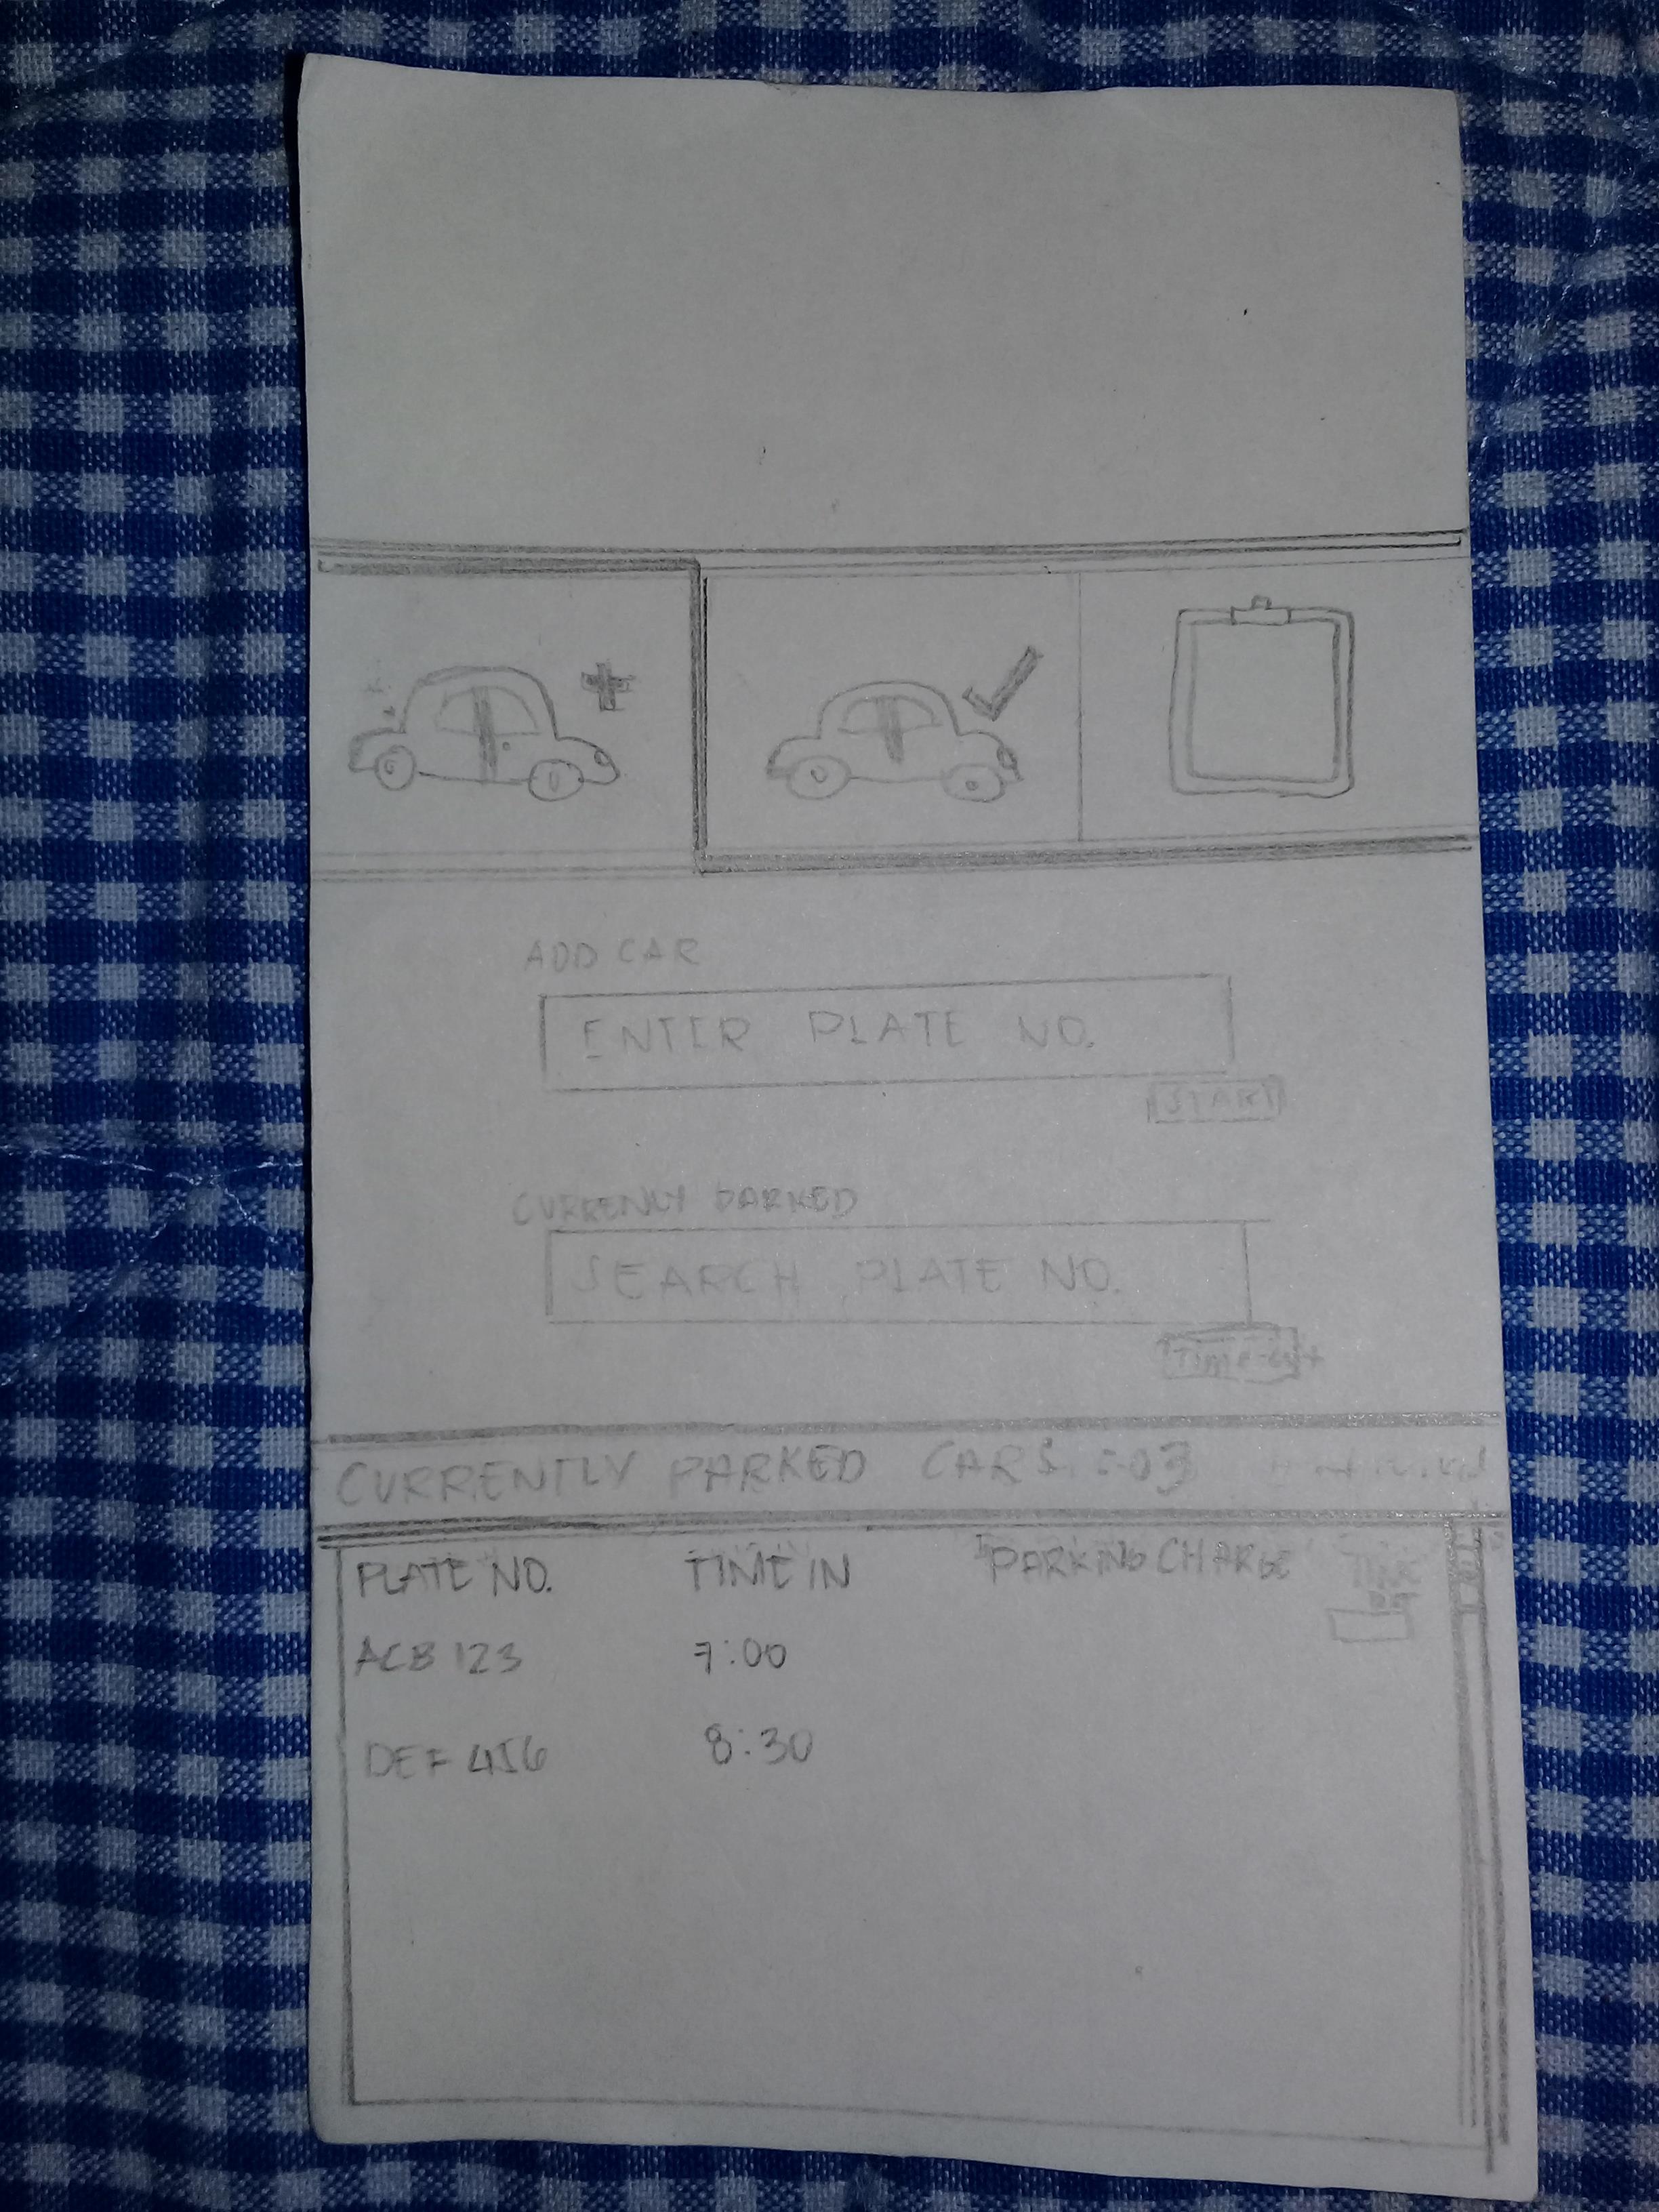 ADD CAR
ENTER PLATE NO.
START
CURRENTLY PARKED
SEARCH PLATE NO.
Time-out
CURRENTLY PARKED CARS : 03
PLATE NO. TIME IN PARKING CHARGE
ACB 123 7:00
DEF 456 8:30